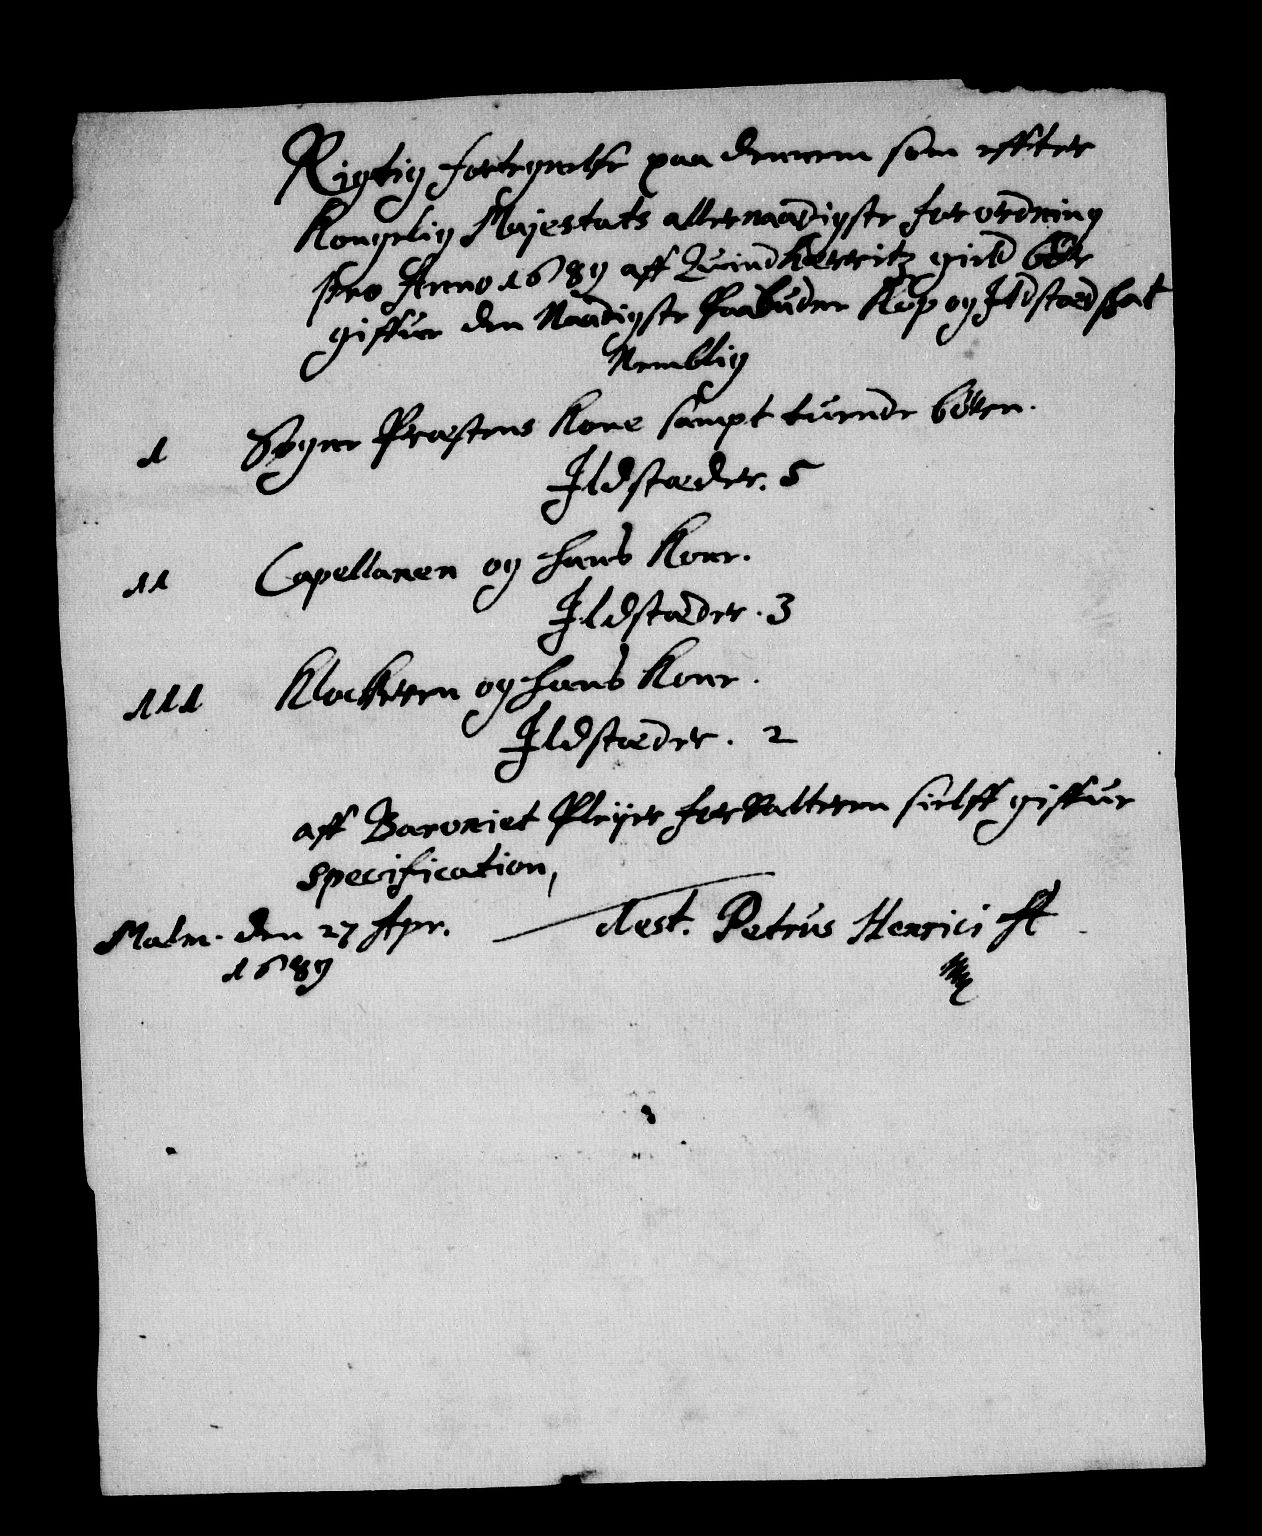 Rigtig fortegnelse paa dennem som effter
Kongelig Majestats allernaadigste forordning
pro Anno 1689 aff Quindherritz gield bör
giffue den Naadigste Paabudne Kop og Ildstæd skat
Nemblig
1 Sogne Præstens Kone sampt tuende börn.
Ildstæder. 5
11 Capellanen og hans Kone.
Ildstæder. 3
111 Klockeren og hans Kone.
Ildstæder. 2
aff Baroniet Pleijer forvalteren sielff giffue
specification,
Malm. den 27 Apr. Test. Petrus Henrici
1689